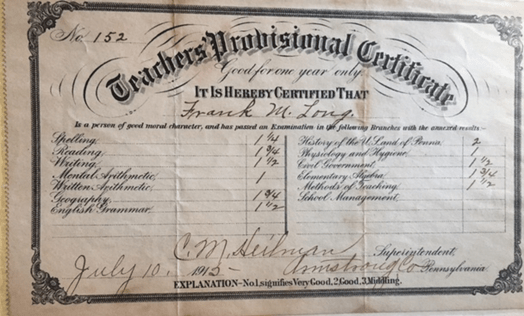 No 152
Teachers Provisional Certificate
Good for one year only.
IT IS HEREBY CERTIFIED THAT
Frank M. Long.
Is a person of good moral character, and has passed an Examination in the following Branches with the annexed results:-
Spelling, 1 1/4
Reading, 1 3/4
Writing, 1 1/2
Mental Arithmetic, 1
Written Arithmetic,
Geography, 1 3/4
English Grammar, 1 1/2
History of the U.S. and of Penna. 2
Physiology and Hygiene,
Civil Government, 1 1/2
Elementary Algebra, 1 3/4
Methods of Teaching, 1 1/2
School Management,
C. M. Heilman Superintendent,
July 10, 1915 Armstrong Co Pennsylvania
EXPLANATION-No.1,signifies Very Good, 2, Good, 3, Middling.